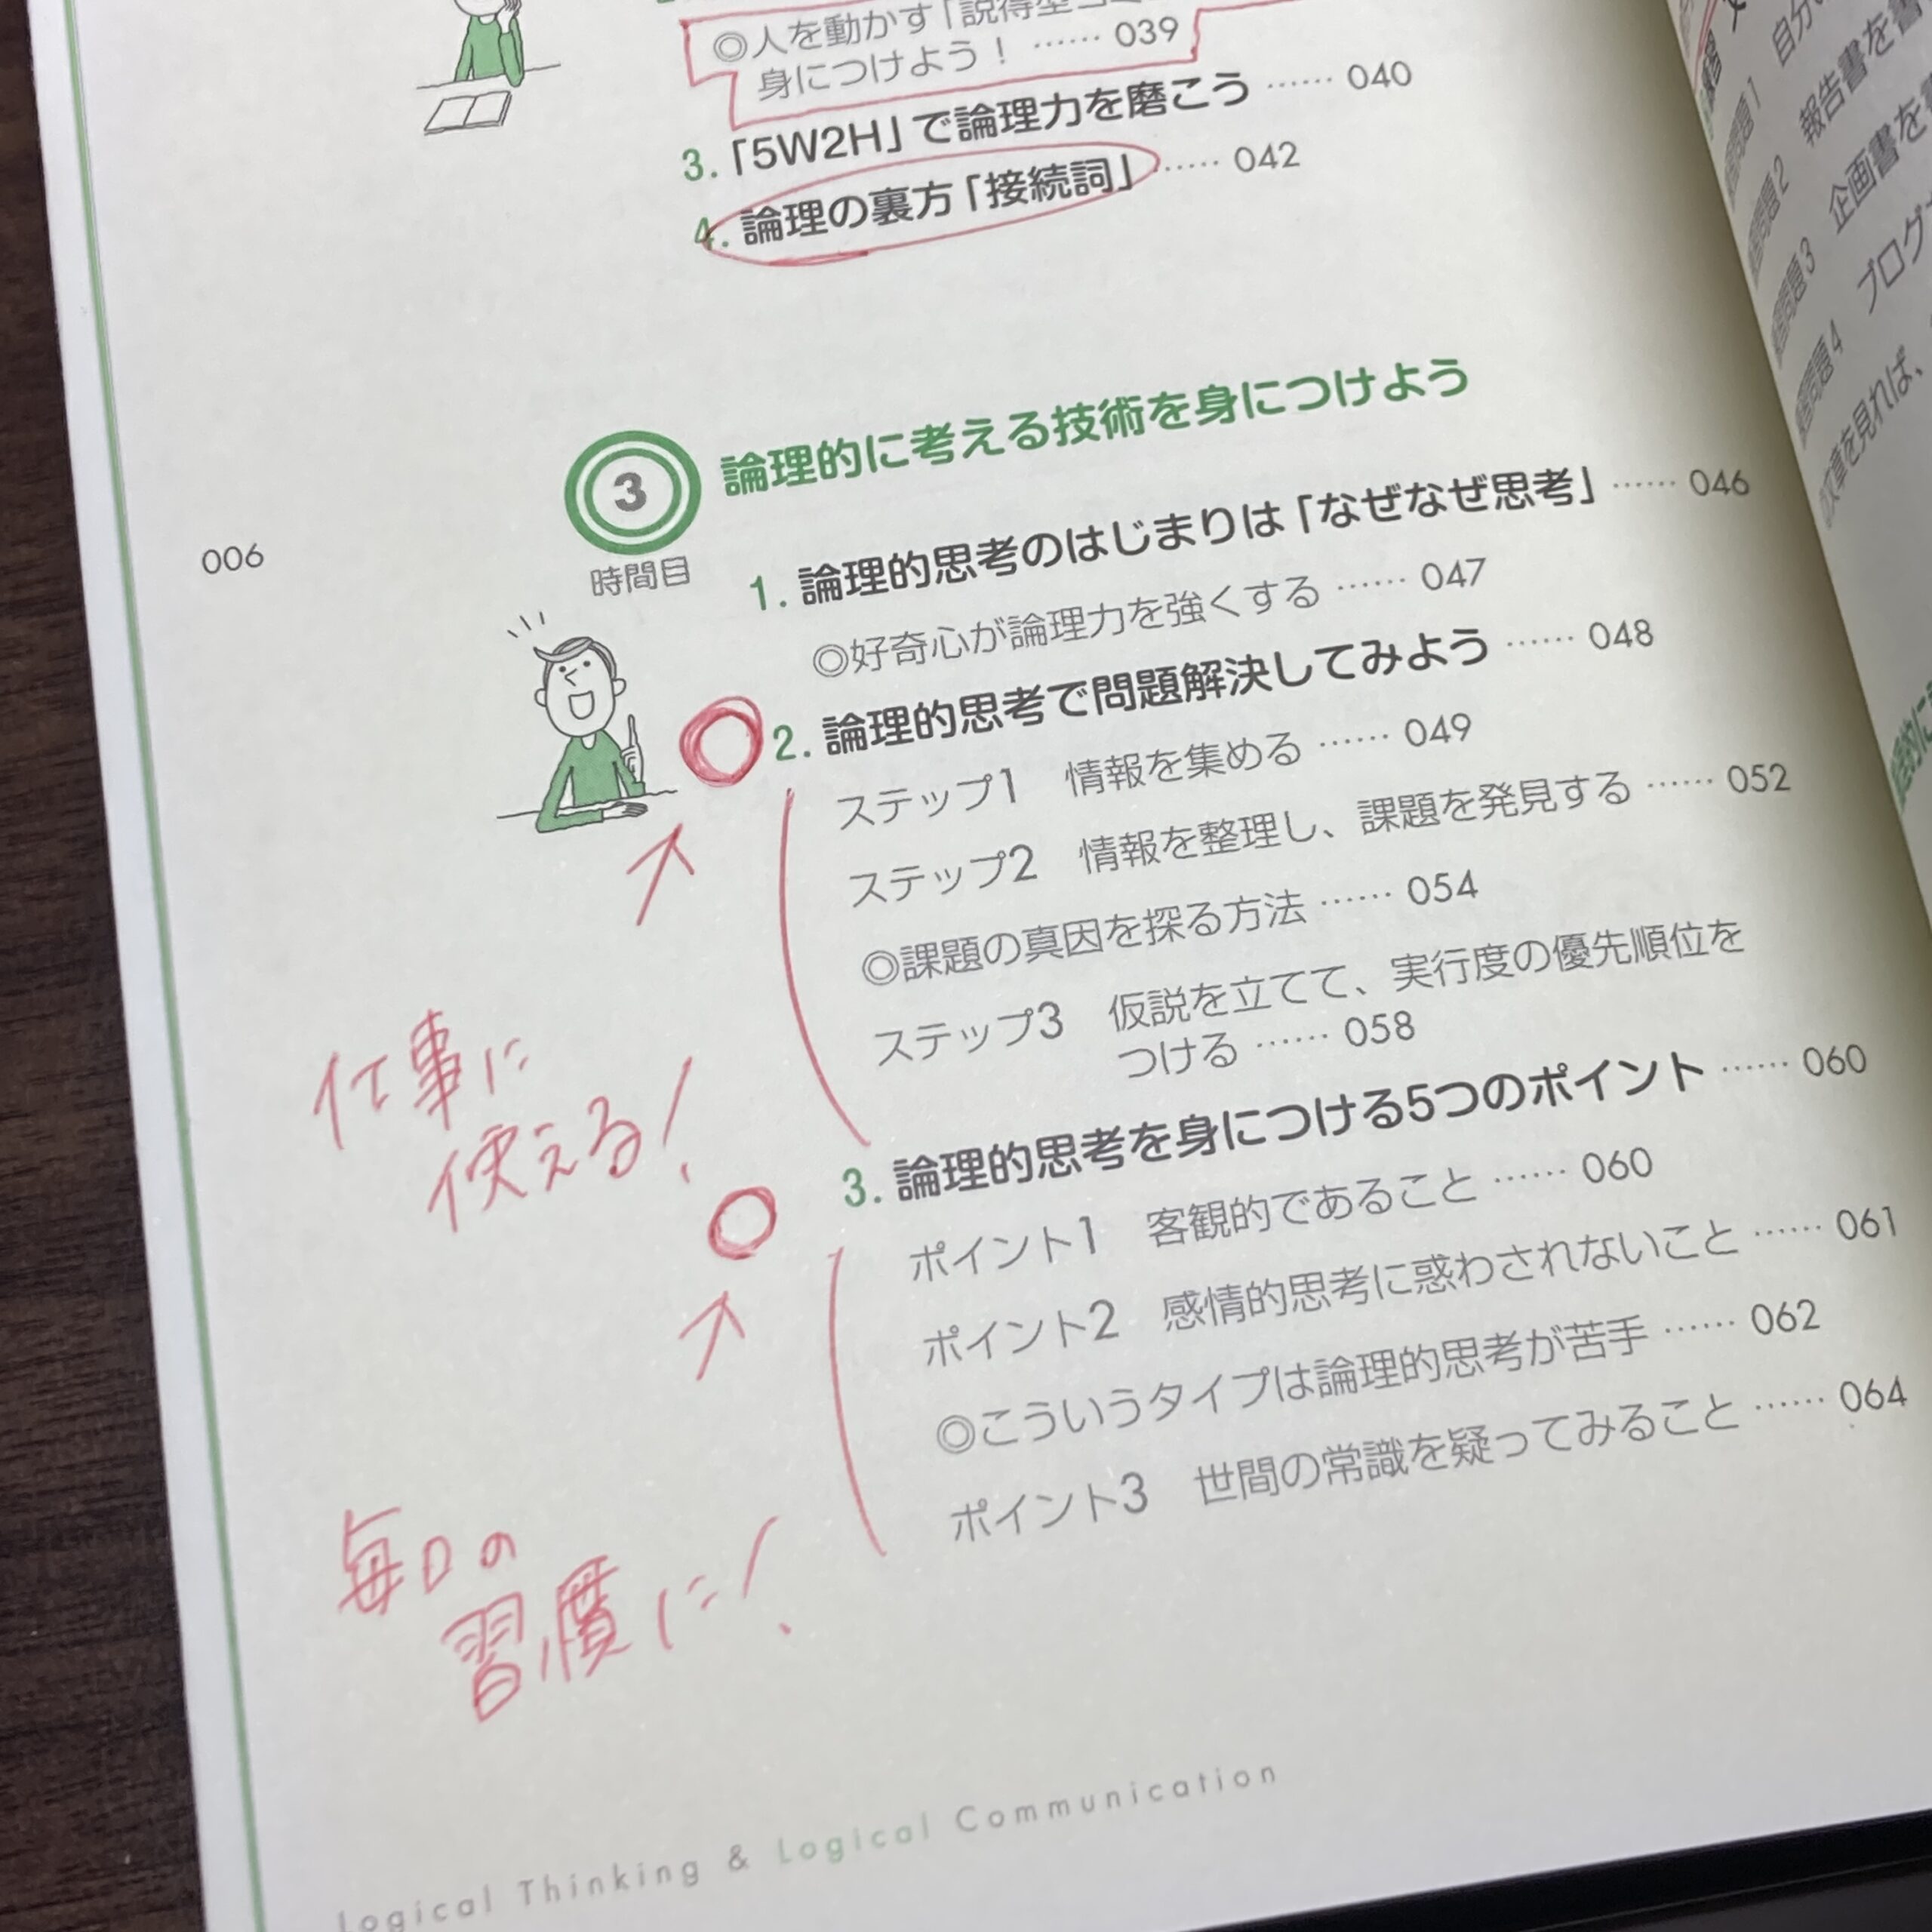 ◎人を動かす「説得型コミ
身につけよう！ …… 039
3.「5W2H」で論理力を磨こう …… 040
4. 論理の裏方「接続詞」…… 042
3
時間目
論理的に考える技術を身につけよう
1. 論理的思考のはじまりは「なぜなぜ思考」…… 046
◎好奇心が論理力を強くする …… 047
006
2. 論理的思考で問題解決してみよう …… 048
ステップ1　情報を集める …… 049
ステップ2　情報を整理し、課題を発見する …… 052
◎課題の真因を探る方法 …… 054
ステップ3　仮説を立てて、実行度の優先順位を
つける …… 058
仕事に
使える！
3. 論理的思考を身につける5つのポイント …… 060
ポイント1　客観的であること …… 060
ポイント2　感情的思考に惑わされないこと …… 061
◎こういうタイプは論理的思考が苦手 …… 062
ポイント3　世間の常識を疑ってみること …… 064
毎日の
習慣に！
Logical Thinking & Logical Communication
自分
問題1
報告書を書
問題2
企画書を
問題3
ブログ
問題4
を見れば、